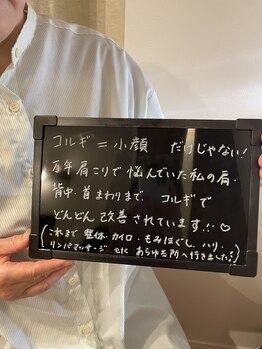 コルギ = 小顔 だけじゃない!
万年肩こりで悩んでいた私の肩・
背中・首まわりまで コルギで
どんどん改善されています!!♡
(これまで 整体・カイロ・もみほぐし・ハリ・
リンパマッサージ etc あらゆる所へ行きました。)